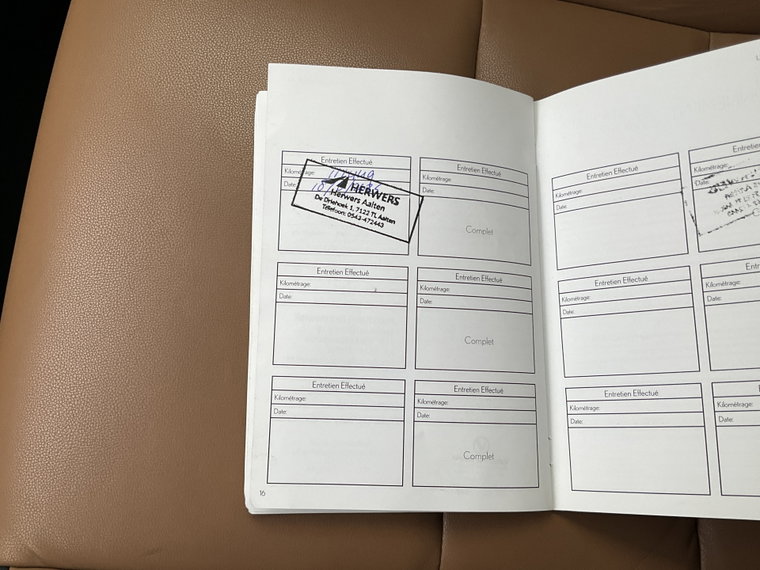 Entretien Effectué
Kilométrage:
Date:
HERWERS
Herwers Aalten
De Driehoek 1, 7122 TL Aalten
Telefoon: 0543-472443
Entretien Effectué
Kilométrage:
Date:
Complet
Entretien Effectué
Kilométrage:
Date:
Entretien Effectué
Kilométrage:
Date:
Complet
Entretien Effectué
Kilométrage:
Date:
Entretien Effectué
Kilométrage:
Date:
Complet
16
Entretien Effectué
Kilométrage:
Date:
Entretien
Kilométrage:
Date:
Entretien Effectué
Kilométrage:
Date:
Kilométrage:
Date:
Entretien Effectué
Kilométrage:
Date:
Kilométrage:
Date: